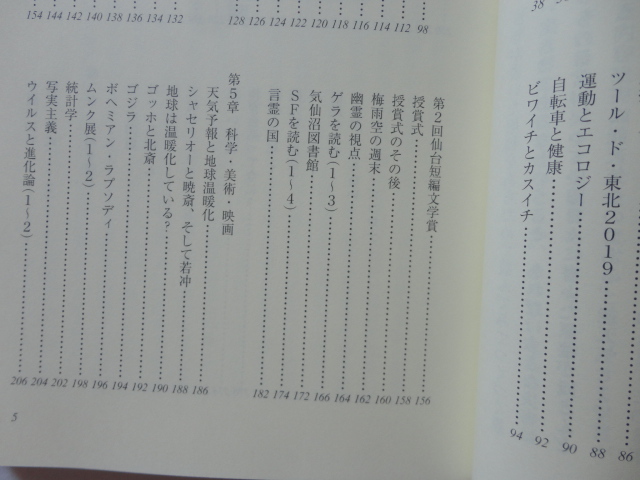 38
86
ツール・ド・東北2019……88
運動とエコロジー……90
自転車と健康……92
ビワイチとカスイチ……94
98
112
114
116
118
120
122
124
126
128
132
134
136
138
140
142
144
154
第2回仙台短編文学賞……156
授賞式……158
授賞式のその後……160
梅雨空の週末……162
幽霊の視点……164
ゲラを読む(1〜3)……166
気仙沼図書館……172
SFを読む(1〜4)……174
言霊の国……182
第5章 科学・美術・映画
天気予報と地球温暖化……186
シャセリオーと暁斎、そして若冲……188
地球は温暖化している?……190
ゴッホと北斎……192
ゴジラ……194
ボヘミアン・ラプソディ……196
ムンク展(1〜2)……198
統計学……202
写実主義……204
ウイルスと進化論(1〜2)……206
5